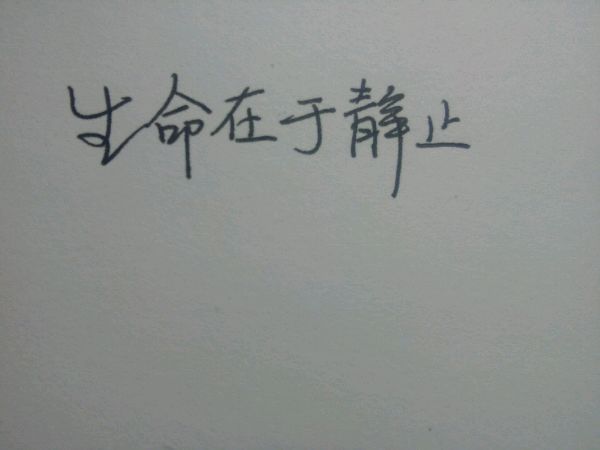 生命在于静止